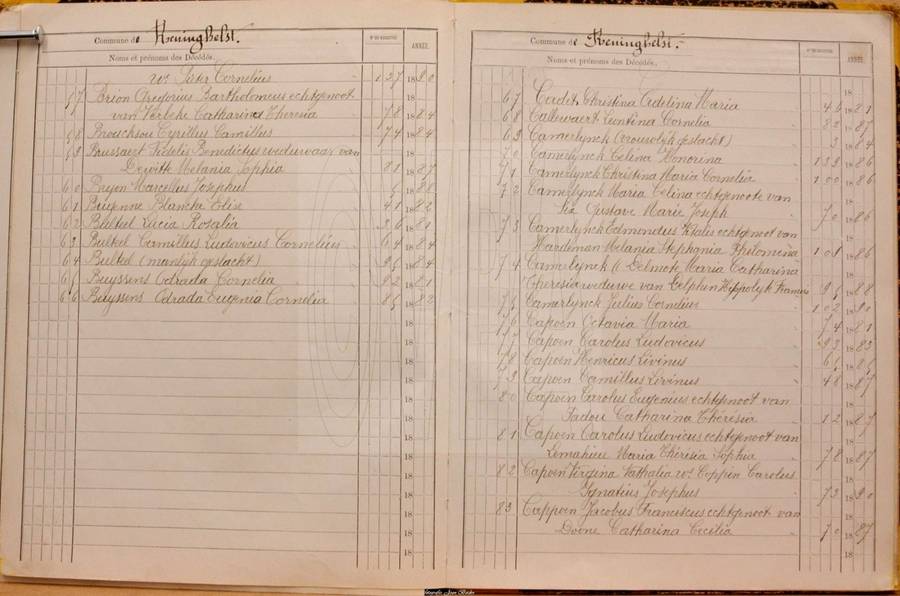 Commune de Reninghelst.
Noms et prénoms des Décédés. ANNÉE.
We Pieter Cornelius 137 1890
57 Brion Gregorius Bartholomeus echtgenoot
van Verbeke Catharina Theresia 78 1884
58 Brouckson Cyrillus Camillus 74 1884
59 Brussaert Fidelis Benedictus weduwaar van
Dewitte Melania Sophia 81 1887
60 Bryon Marcellus Josephus 5 1888
61 Buenne Blanche Elise 41 1882
62 Bulteel Lucia Rosalia 36 1881
63 Bulteel Camillus Ludovicus Cornelius 64 1884
64 Bulteel (manlijk geslacht) 95 1884
65 Buyssens Odrada Cornelia 82 1881
66 Buyssens Odrada Eugenia Cornelia 85 1882
Commune de Reninghelst.
Noms et prénoms des Décédés. ANNÉE.
67 Cadet Christina Adelina Maria 46 1881
68 Callewaert Leontina Cornelia 82 1887
69 Camerlynck (vrouwelijk geslacht) 3 1884
70 Camerlynck Celina Honorina 139 1886
71 Camerlynck Christina Maria Cornelia 100 1886
72 Camerlynck Maria Celina echtgenoote van
Gustave Marie Joseph 70 1886
73 Camerlynck Edmondus Vitalis echtgenoot van
Hardeman Melania Stephania Philomena 101 1886
74 Camerlynck Delmote Maria Catharina
Theresia weduwe van Delphin Hippolyte 95 1888
75 Camerlynck Julius Cornelius 102 1890
76 Capoen Octavia Maria 74 1881
77 Capoen Carolus Ludovicus 93 1883
78 Capoen Henricus Livinus 65 1885
79 Capoen Camillus Livinus 48 1887
80 Capoen Carolus Eugenius echtgenoot van
Fadou Catharina Theresia 12 1887
81 Capoen Carolus Ludovicus echtgenoot van
Lemahieu Maria Theresia Sophia 78 1887
82 Capoen Virginia Nathalia we Coppin Carolus
Ignatius Josephus 73 1890
83 Cappoen Jacobus Franciscus echtgenoot van
Dvine Catharina Cecilia 70 1887